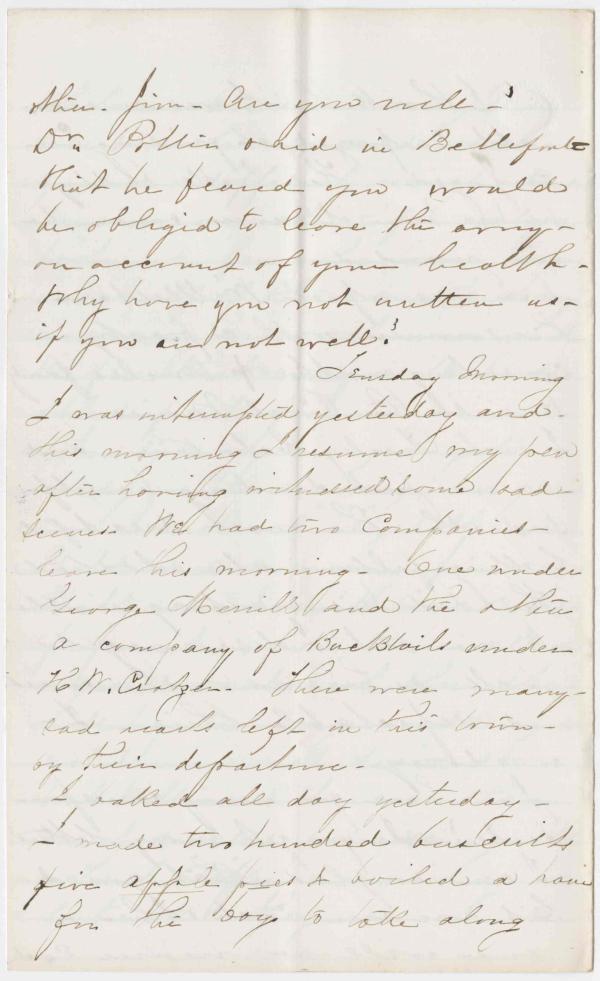 other. Jim - Are you well -?
Dr. Potter said in Bellefonte
that he feared you would
be obligid to leave the army -
on account of your health -
Why have you not written us -
if you are not well?
Teusday Morning
I was interrupted yesterday and -
this morning I resume my pen
after having witnessed some sad
scenes. We had two Companies -
leave this morning - One under
George Merrill and the other
a company of Bucktails under
H W. - There were many -
sad hearts left in this town -
by their departure -
I baked all day yesterday -
I made two hundred buscuits
five apple pies & boiled a ham
for the boys to take along